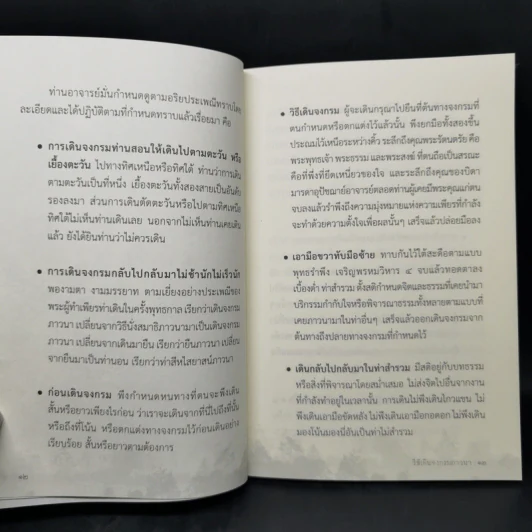 ท่านอาจารย์มั่นกำหนดดูตามอริยประเพณีทราบโดย
ละเอียดและได้ปฏิบัติตามที่กำหนดทราบแล้วเรื่อยมา คือ
• การเดินจงกรมท่านสอนให้เดินไปตามตะวัน หรือ
เยื้องตะวัน ไปทางทิศเหนือหรือทิศใต้ ท่านว่าการเดิน
ตามตะวันเป็นที่หนึ่ง เยื้องตะวันทั้งสองสายเป็นอันดับ
รองลงมา ส่วนการเดินตัดตะวันหรือไปตามทิศเหนือ
ทิศใต้ไม่เห็นท่านเดินเลย นอกจากไม่เห็นท่านเคยเดิน
แล้ว ยังได้ยินท่านว่าไม่ควรเดิน
• การเดินจงกรมกลับไปกลับมาไม่ช้านักไม่เร็วนัก
พองามตา งามมรรยาท ตามเยี่ยงอย่างประเพณีของ
พระผู้ทำเพียรท่าเดินในครั้งพุทธกาล เรียกว่าเดินจงกรม
ภาวนา เปลี่ยนจากวิธีนั่งสมาธิภาวนามาเป็นเดินจงกรม
ภาวนา เปลี่ยนจากเดินมายืน เรียกว่ายืนภาวนา เปลี่ยน
จากยืนมาเป็นท่านอน เรียกว่าท่าสีหไสยาสน์ภาวนา
• ก่อนเดินจงกรม พึงกำหนดหนทางที่ตนจะพึงเดิน
สั้นหรือยาวเพียงไรก่อน ว่าเราจะเดินจากที่นี่ไปถึงที่นั้น
หรือถึงที่โน้น หรือตกแต่งทางจงกรมไว้ก่อนเดินอย่าง
เรียบร้อย สั้นหรือยาวตามต้องการ
๑๒
• วิธีเดินจงกรม ผู้จะเดินกรุณาไปยืนที่ต้นทางจงกรมที่
ตนกำหนดหรือตกแต่งไว้แล้วนั้น พึงยกมือทั้งสองขึ้น
ประณมไว้เหนือระหว่างคิ้ว ระลึกถึงคุณพระรัตนตรัย คือ
พระพุทธเจ้า พระธรรม และพระสงฆ์ ที่ตนถือเป็นสรณะ
คือที่พึ่งที่ยึดเหนี่ยวของใจ และระลึกถึงคุณของบิดา
มารดาอุปัชฌาย์อาจารย์ตลอดท่านผู้เคยมีพระคุณแก่ตน
จบลงแล้วรำพึงถึงความมุ่งหมายแห่งความเพียรที่กำลัง
จะทำด้วยความตั้งใจเพื่อผลนั้นๆ เสร็จแล้วปล่อยมือลง
• เอามือขวาทับมือซ้าย ทาบกันไว้ใต้สะดือตามแบบ
พุทธรำพึง เจริญพรหมวิหาร ๔ จบแล้วทอดตาลง
เบื้องต่ำ ท่าสำรวม ตั้งสติกำหนดจิตและธรรมที่เคยนำมา
บริกรรมกำกับใจหรือพิจารณาธรรมทั้งหลายตามแบบที่
เคยภาวนามาในท่าอื่นๆ เสร็จแล้วออกเดินจงกรมจาก
ต้นทางถึงปลายทางจงกรมที่กำหนดไว้
• เดินกลับไปกลับมาในท่าสำรวม มีสติอยู่กับบทธรรม
หรือสิ่งที่พิจารณาโดยสม่ำเสมอ ไม่ส่งจิตไปอื่นจากงาน
ที่กำลังทำอยู่ในเวลานั้น การเดินไม่พึงเดินไกวแขน ไม่
พึงเดินเอามือขัดหลัง ไม่พึงเดินเอามือกอดอก ไม่พึงเดิน
มองโน้นมองนี่อันเป็นท่าไม่สำรวม
๑๓